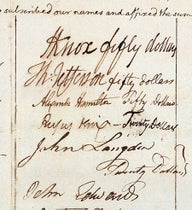 subscribed our names and affixed the sum
HKnox fifty dollars
Th: Jefferson fifty Dollars
Alexander Hamilton Fifty Dollars
Rufus King Twenty Dollars
John Langdon
Twenty Dollars
John Edwards